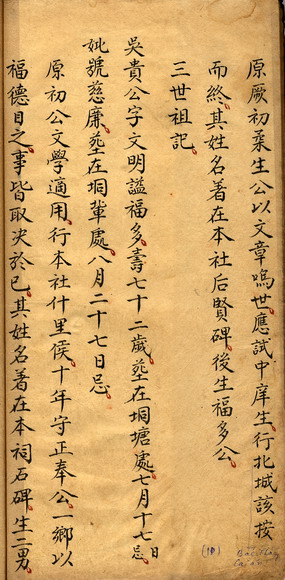 原厥初柔生公以文章鳴世應試中庠生行北城該按
而終其姓名著在本社后賢碑後生福多公
三世祖記
吳貴公字文明謚福多壽七十二歲塟在垌塘處七月十七日忌
妣號慈廉塟在垌輦處八月二十七日忌
原初公文學適用行本社什里侯十年守正奉公一鄉以
福德目之事皆取决於已其姓名著在本祠石碑生二男